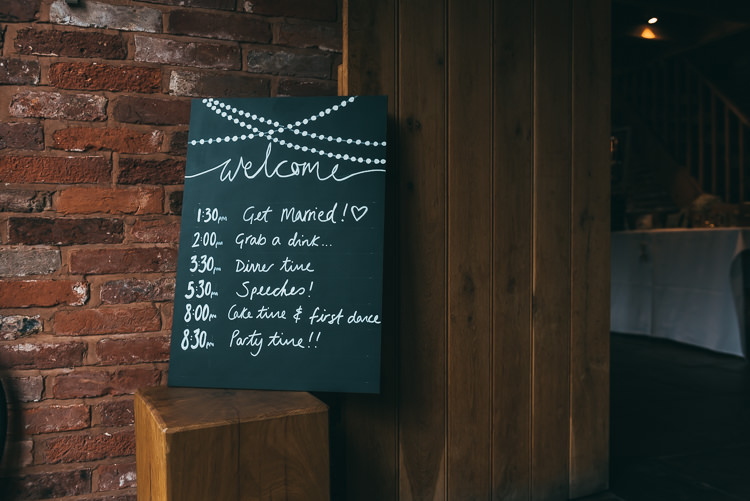 welcome
1:30pm Get Married! ♡
2:00pm Grab a drink...
3:30pm Dinner time
5:30pm Speeches!
8:00pm Cake time & first dance
8:30pm Party time!!